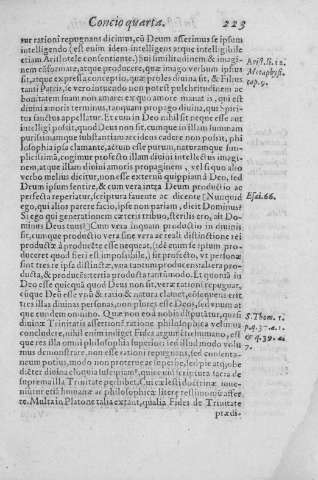 Concio quarta. 223
tur rationi repugnant dicimus, cũ Deum asserimus se ipsum
intelligendo (est enim idem intelligens atque intelligibile
etiam Aristotele consentiente.) Sui similitudinem & imagi-
nem cõformare, atque producere, quæ imago verbum ipsius
sit, atque expressa conceptio, quæ proles divina sit, & Filius
tanti Patris, se vero intuendo non potest pulchritudinem ac
bonitatem suam non amare: ex quo amore manat is, qui est
divini amoris terminus, tanquam propago divina, qui Spiri-
tus sanctus appellatur. Et cum in Deo nihil sit neque esse aut
intelligi possit, quod Deus non sit, cumque in illam summam
purissimamque substantiam accidens cadere non possit, phi
losophia ipsa clamante, actum esse purum, naturamque sim-
plicissimã, cogimur profecto illam divini intellectus imagi-
nem, atque illum divini amoris propaginem, vel si quo alio
verbo melius dicitur, non esse externũ quippiam à Deo, sed
Deum ipsum sentire, & cum vera intra Deum productio ac
perfecta reperiatur, scriptura favente ac dicente [Nunquid
ego, qui alios parere facio, ipse non pariam, dicit Dominus?
Si ego qui generationem cæteris tribuo, sterilis ero, ait Do-
minus Deus tuus?] Cum vera inquam productio in divinis
sit, cumque productio vera sine vera ac reali distinctione rei
productæ à producẽte esse nequeat, (idẽ enim se ipsum pro-
duceret quod fieri est impossibile,) sit profecto, vt personæ
sint tres re ipsa distinctæ, vna tantum producens altera pro-
ducta, & producẽs tertia producta tantũ modo. Et quonià in
Deo esse quicquã quod Deus non sit, veræ rationi repugnat,
cũque Deũ esse vnũ & ratio & natura clamet, cõsequens erit
tres illas divinas personas, non plures esse Deos, sed vnum at
que eundem omnino.
divinæ Trinitatis assertionẽ ratione philosophica velimus
concludere, nihil enim indiget Fides argumẽto humano, esse
que res illa omni philosophia superior: sed illud modo volu
mus demonstrare, non esse rationi repugnans, sed consenta-
neum potius, modo non proterve ac superbe, sed pie atq; obe
diẽter divina eloquia suscipiam9, quæ cum scriptura sacra de
suprema illa Trinitate perhibet. Cui cælesti doctrinæ inve-
niũtur etiã humanæ ac philosophicæ literæ testimoniũ affer
re. Multa in Platone talia extant, qualia Fides de Trinitate
prædi-
Arist. li. 12.
Metaphysi.
cap. 9.
Esai. 66.
S. Thom. 1.
p. q. 37. a. 1.
& q. 39. a.
7.